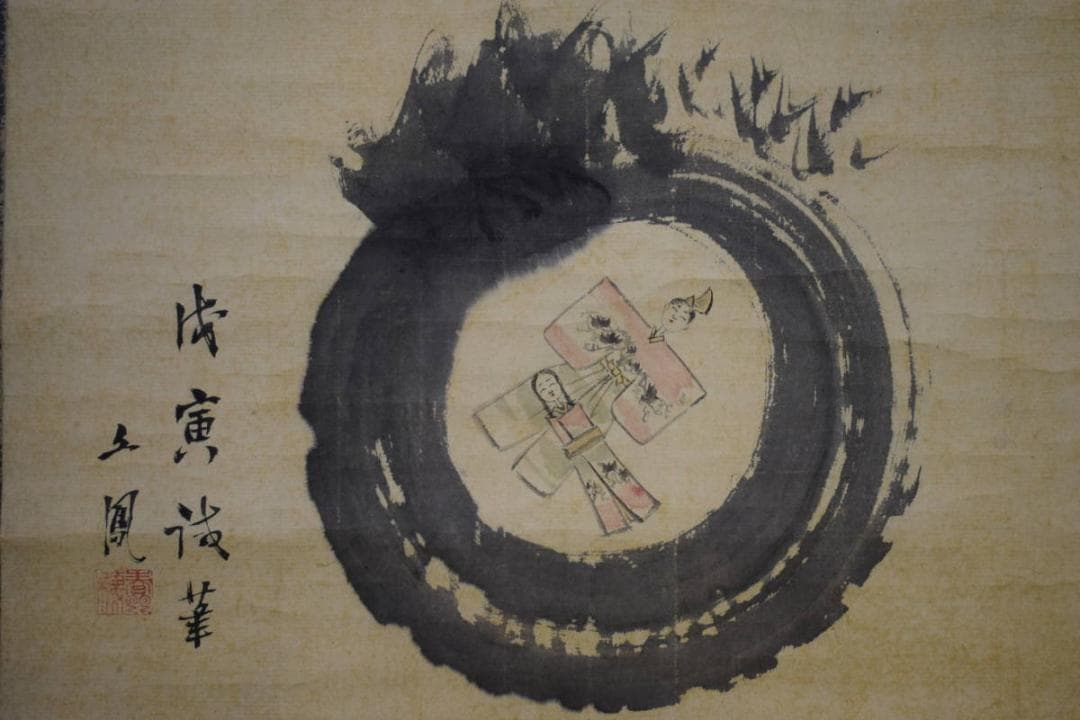 戊寅試筆
鳳